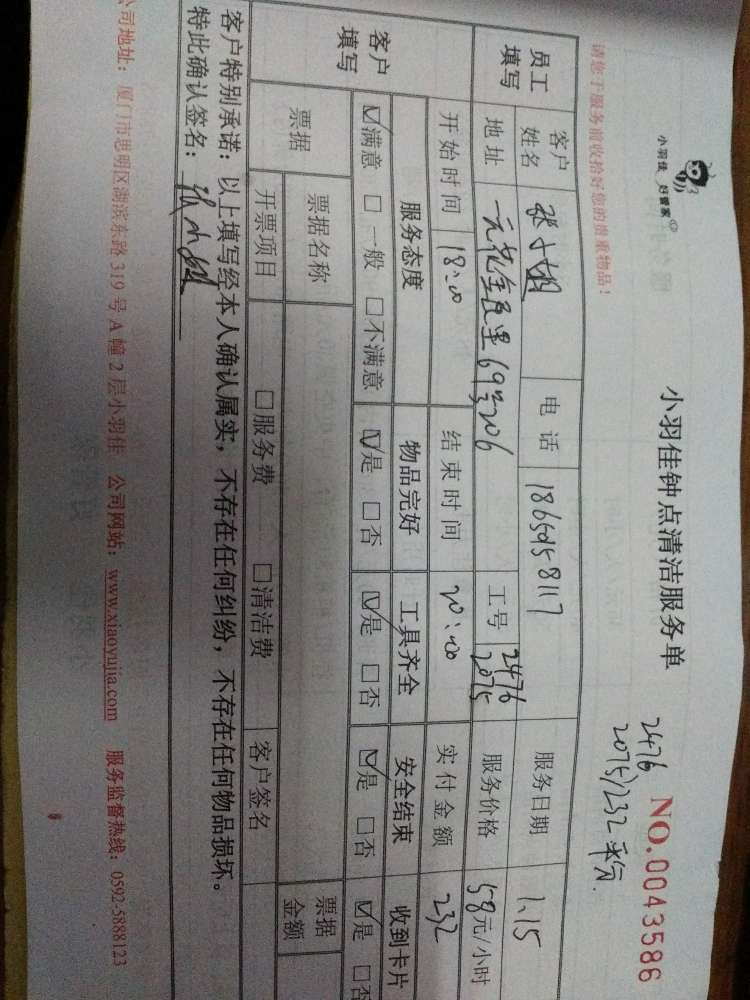 小羽佳 好管家
小羽佳钟点清洁服务单
NO.0043586
2476
2075)232 平分
请您于服务前收拾好您的贵重物品!
员工填写 客户姓名 张小姐 电话 18659158117 服务日期 1.15
地址 69号206 工号 2476 2075 服务价格 58元/小时
开始时间 18:00 结束时间 20:00 实付金额 232
客户填写 服务态度 物品完好 工具齐全 安全结束 收到卡片
☑满意 □一般 □不满意 ☑是 □否 ☑是 □否 ☑是 □否 ☑是 □否
票据 票据名称 票据金额
开票项目 □服务费 □清洁费 客户签名
客户特别承诺:以上填写经本人确认属实,不存在任何纠纷,不存在任何物品损坏。
特此确认签名:
公司地址:厦门市思明区湖滨东路 319 号 A 幢 2 层小羽佳 公司网站:www.xiaoyujia.com 服务监督热线:0592-5888123